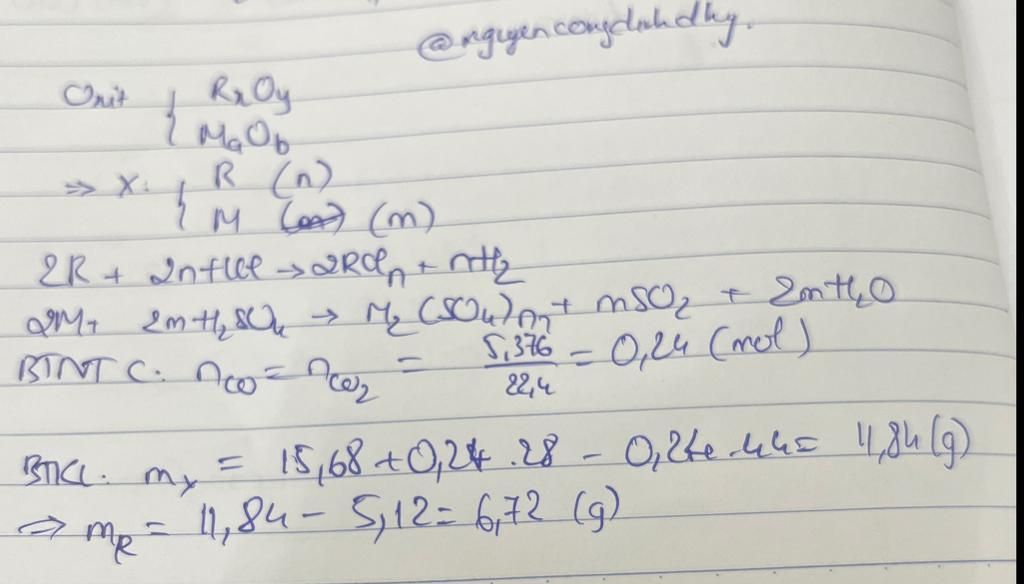 @nguyencongdinhdhy.
Oxit { RxOy
{ MaOb
=> X: { R (n)
{ M (m)
2R + 2nHCl → 2RCln + nH2
2M + 2mH2SO4 → M2(SO4)m + mSO2 + 2mH2O
BTNT C: nCO = nCO2 = 5,376/22,4 = 0,24 (mol)
BTKL: mX = 15,68 + 0,24 .28 - 0,24 .44 = 11,84 (g)
=> mR = 11,84 - 5,12 = 6,72 (g)